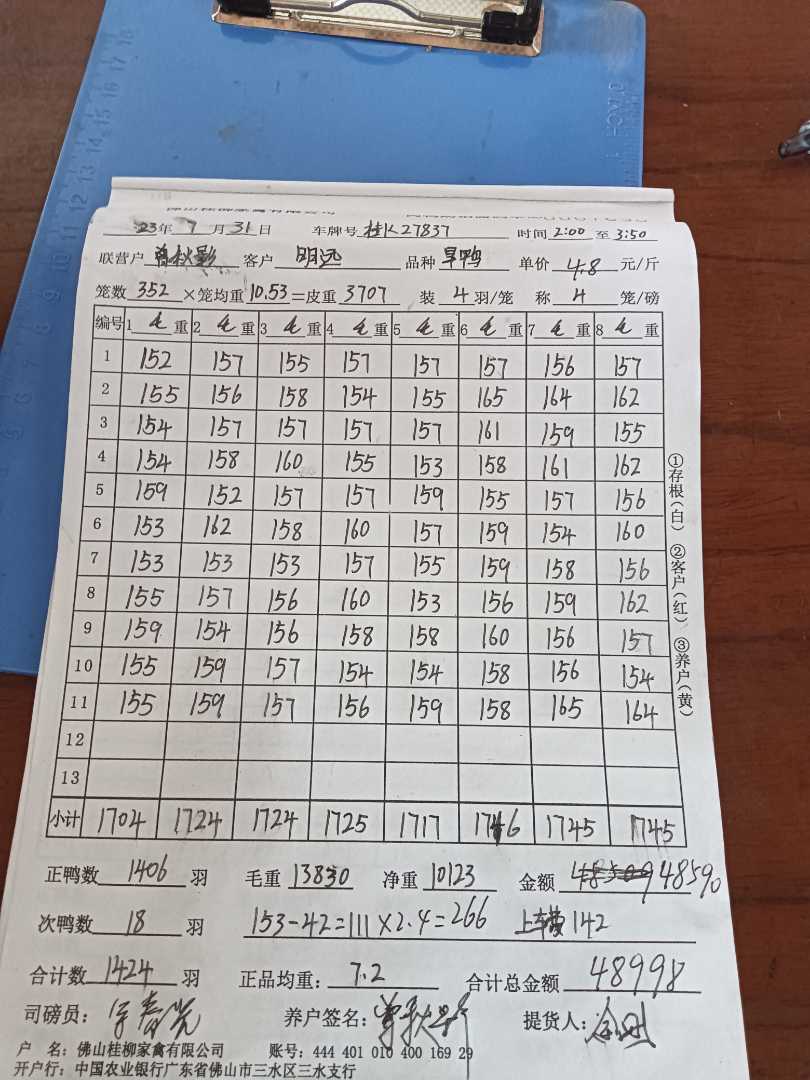 23年 7 月 31 日 车牌号 桂K27837 时间 2:00 至 3:50
联营户 曾秋影 客户 明远 品种 旱鸭 单价 4.8 元/斤
笼数 352 ×笼均重 10.53 =皮重 3707 装 4 羽/笼 称 4 笼/磅
编号 1 毛 重 2 毛 重 3 毛 重 4 毛 重 5 毛 重 6 毛 重 7 毛 重 8 毛 重
1 152 157 155 157 157 157 156 157
2 155 156 158 154 155 165 164 162
3 154 157 157 157 157 161 159 155
4 154 158 160 155 153 158 161 162
5 159 152 157 157 159 155 157 156
6 153 162 158 160 157 159 154 160
7 153 153 153 157 155 159 158 156
8 155 157 156 160 153 156 159 162
9 159 154 156 158 158 160 156 157
10 155 159 157 154 154 158 156 154
11 155 159 157 156 159 158 165 164
12
13
小计 1704 1724 1724 1725 1717 1746 1745 1745
①存根(白) ②客户(红) ③养户(黄)
正鸭数 1406 羽 毛重 13830 净重 10123 金额 48590
次鸭数 18 羽 153-42=111×2.4=266 上车费142
合计数 1424 羽 正品均重: 7.2 合计总金额 48998
司磅员: 养户签名: 曾秋影 提货人:
户 名: 佛山桂柳家禽有限公司 账号: 444 401 010 400 169 29
开户行: 中国农业银行广东省佛山市三水区三水支行